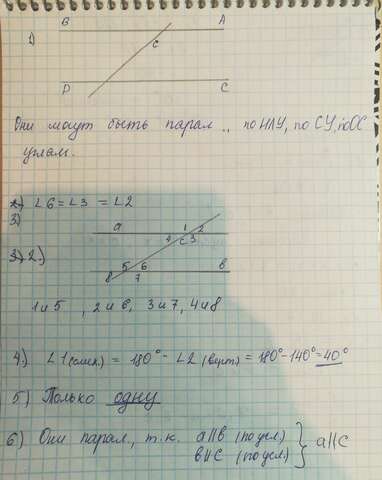 B A
1)
c
D C
Они могут быть парал., по НЛУ, по СУ, по ОС
углам.
∠6 = ∠3 = ∠2
3)
a 1 2
4 c 3
2)
5 6 в
8 7
1 и 5 , 2 и 6, 3 и 7, 4 и 8
4.) ∠1 (смеж.) = 180° - ∠2 (верт.) = 180° - 140° = 40°
5) Только одну
6) Они парал., т.к. a||b (по усл.) } a||c
b||c (по усл.)